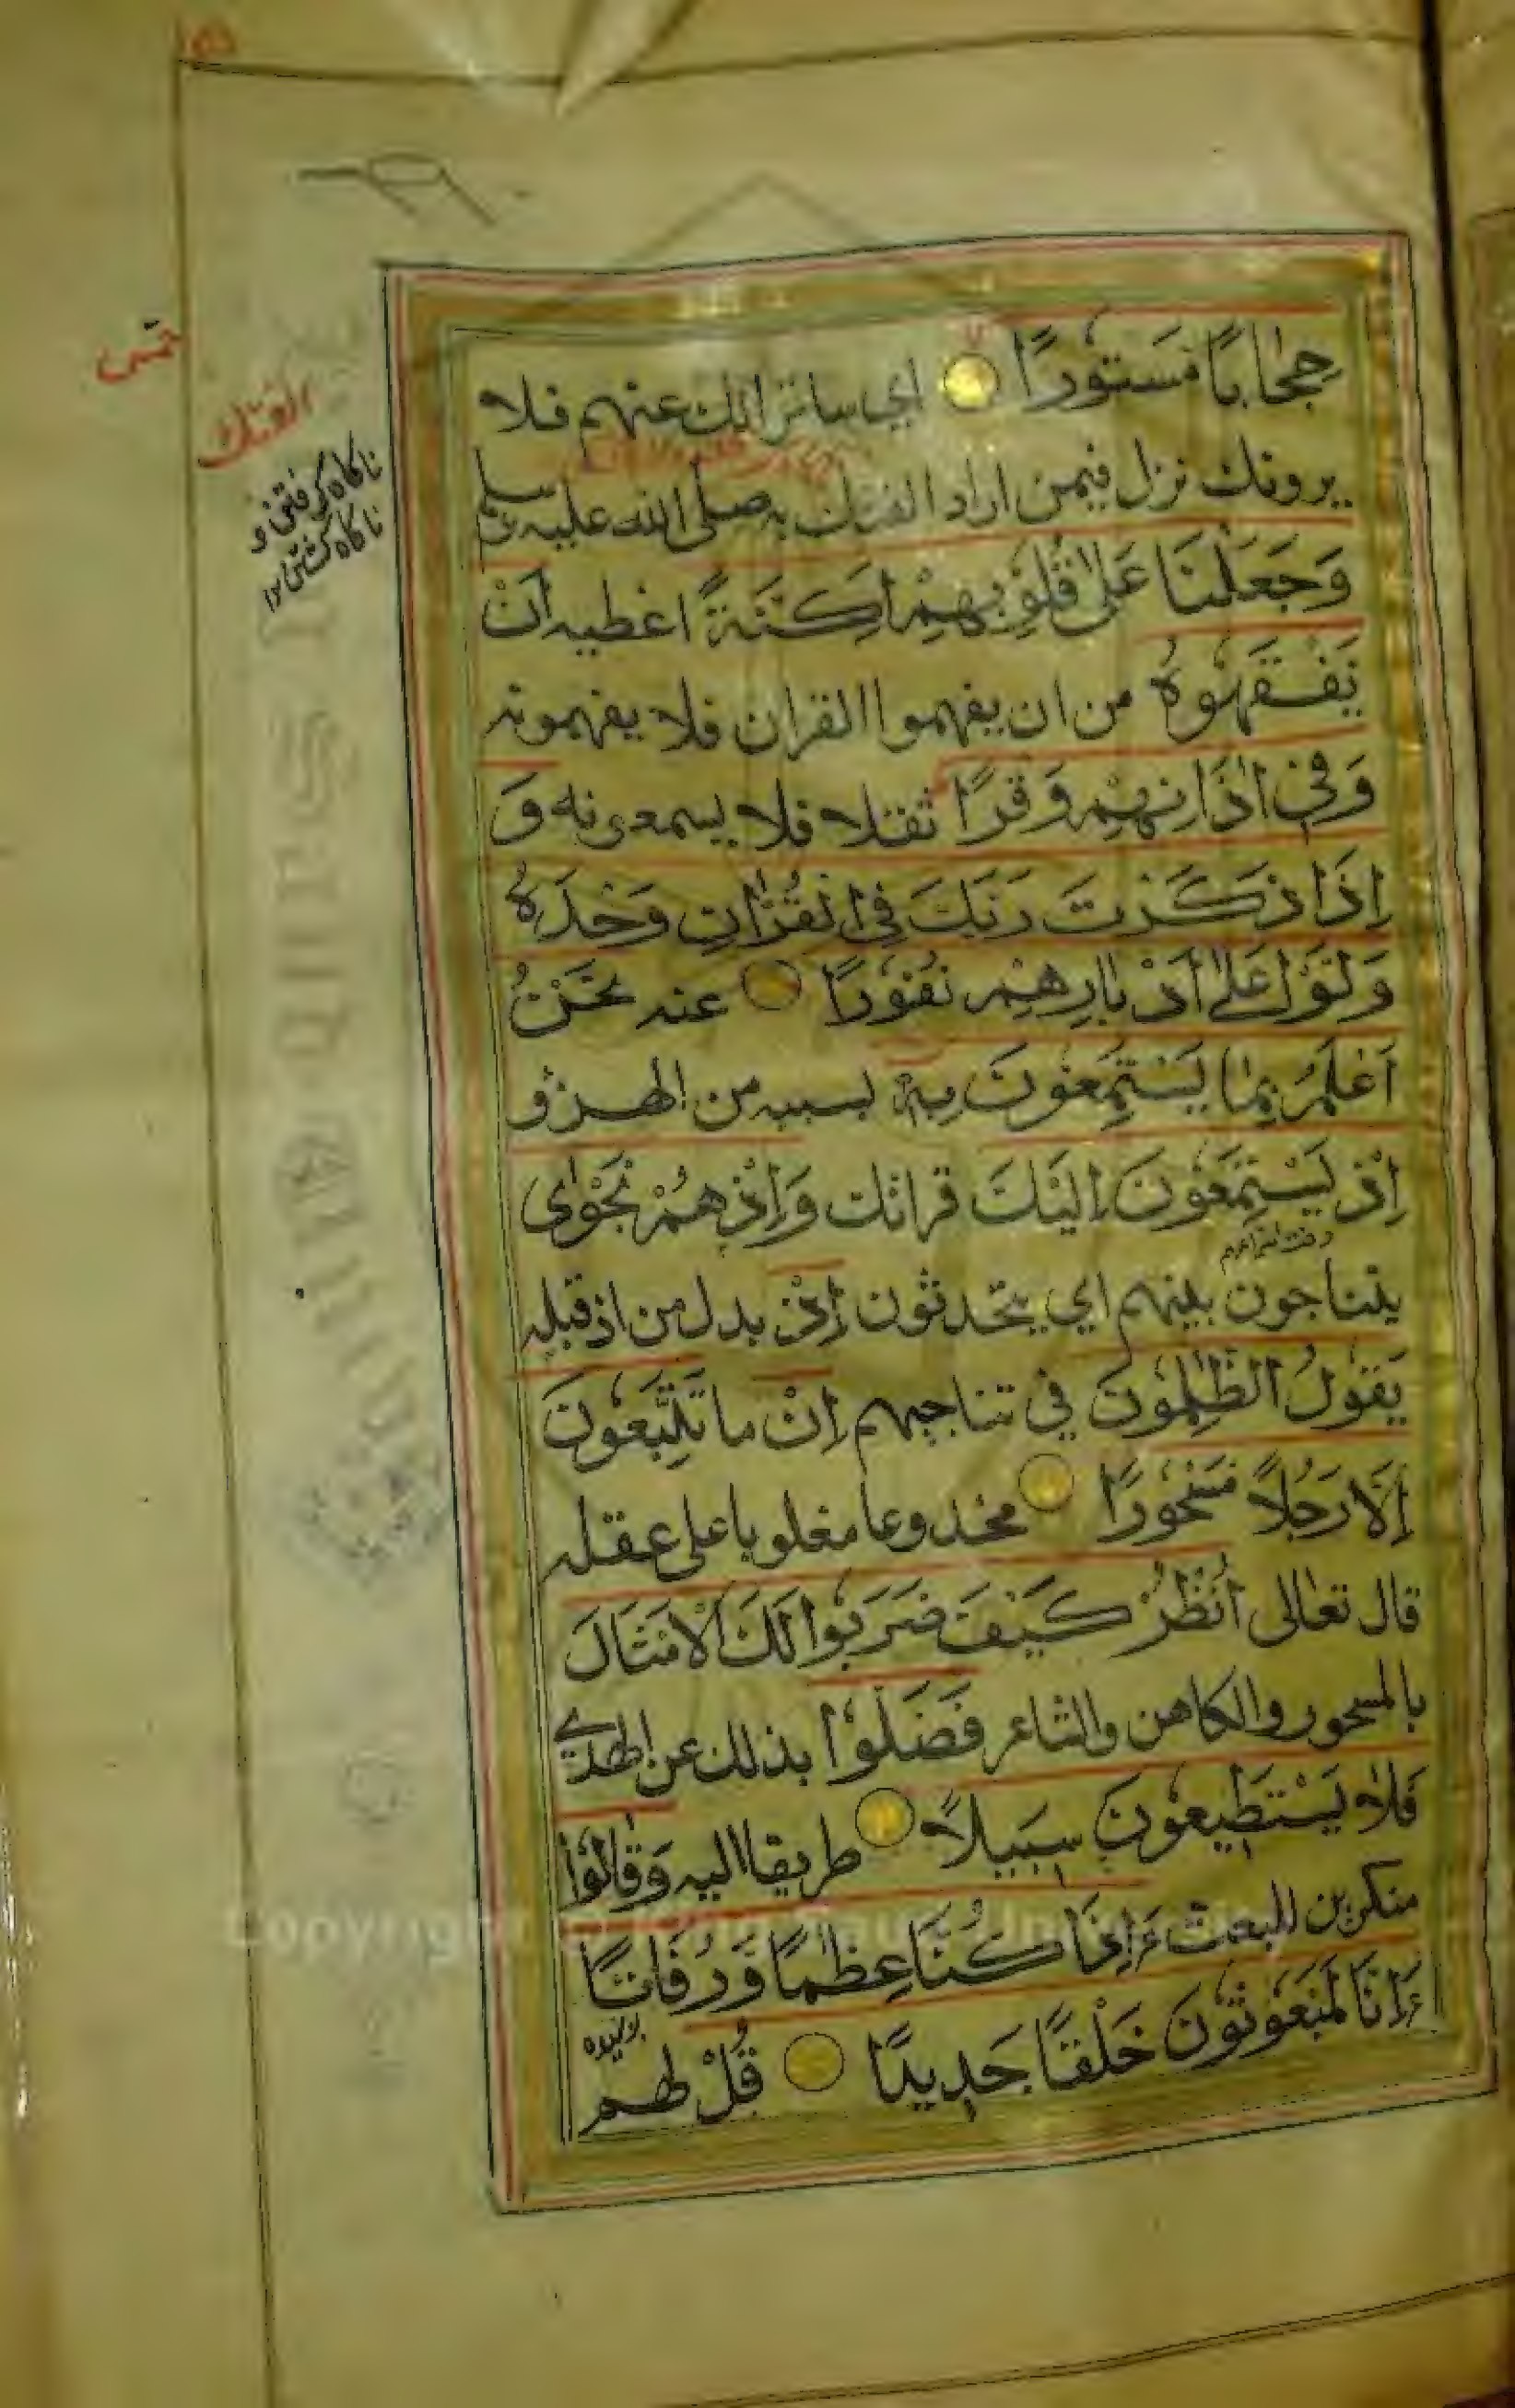 حِجَابًا مَسْتُورًا اي ساترا لك عنهم فلا
يرونك نزل فيمن اراد الفتك به صلى الله عليه وسلم
وَجَعَلْنَا عَلَىٰ قُلُوبِهِمْ اَكِنَّةً اغطية اَنْ
يَفْقَهُوهُ من ان يفهموا القران فلا يفهمونه
وَفِي اٰذَانِهِمْ وَقْرًا ثقلا فلا يسمعونه وَ
اِذَا ذَكَرْتَ رَبَّكَ فِي الْقُرْاٰنِ وَحْدَهُ
وَلَّوْا عَلٰى اَدْبَارِهِمْ نُفُورًا عنه نَحْنُ
اَعْلَمُ بِمَا يَسْتَمِعُونَ بِهٖ بسببه من الهزؤ
اِذْ يَسْتَمِعُونَ اِلَيْكَ قرائتك وَاِذْ هُمْ نَجْوٰى
يتناجون بينهم اي يتحدثون اِذْ بدل من اذ قبله
يَقُولُ الظّٰلِمُونَ في تناجيهم اِنْ ما تَتَّبِعُونَ
اِلَّا رَجُلًا مَسْحُورًا مخدوعا مغلوبا على عقله
قال تعالى اُنْظُرْ كَيْفَ ضَرَبُوا لَكَ الْاَمْثَالَ
بالمسحور والكاهن والشاعر فَضَلُّوْا بذلك عن الهدى
فَلَا يَسْتَطِيعُونَ سَبِيلًا طريقا اليه وَقَالُوْا
منكرين للبعث ءَاِذَا كُنَّا عِظٰمًا وَّرُفَاتًا
ءَاِنَّا لَمَبْعُوثُونَ خَلْقًا جَدِيدًا قُلْ لهم
الفتك
ناكاه كرفتن و
ناكاه كشتن ١٢
Copyright © King Saud University